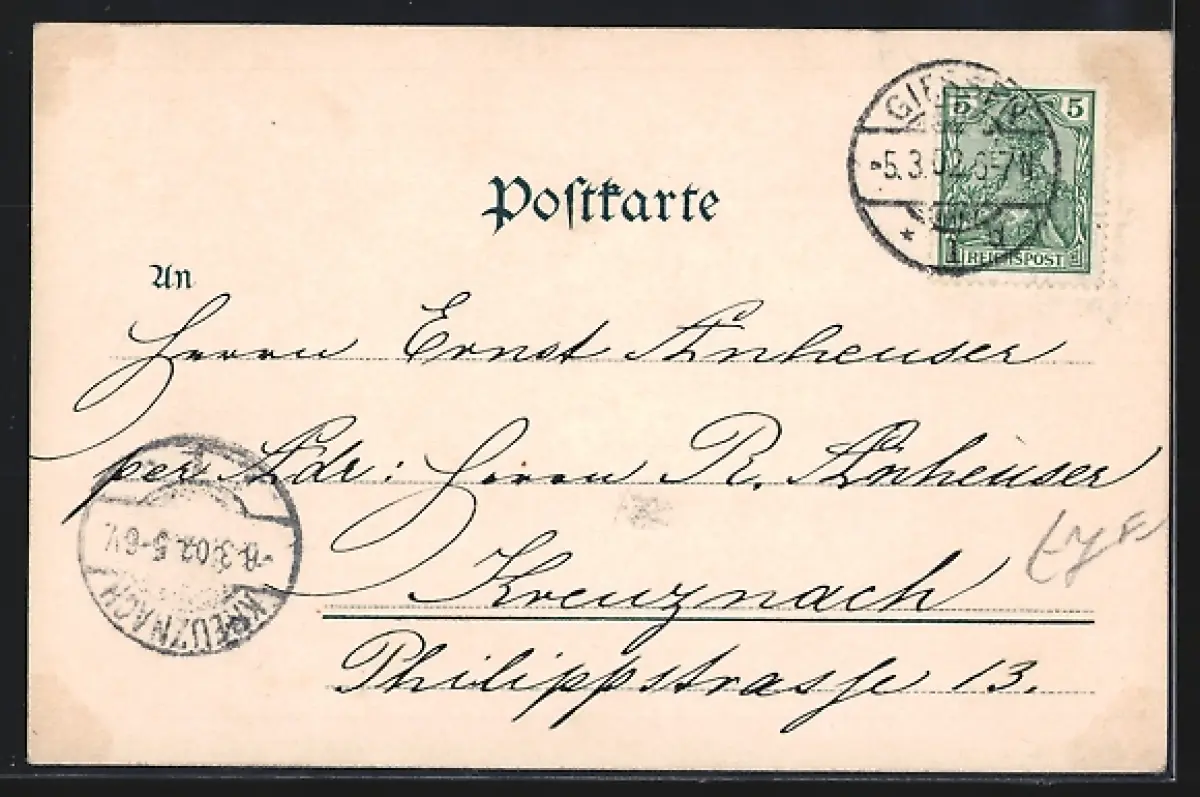 Postkarte
GIESSEN
5.3.02.6-7N.
1
5 5
REICHSPOST
An
Herrn Ernst Anheuser
per Adr: Herrn R. Anheuser
Kreuznach
Philippstrasse 13.
KREUZNACH
6.3.02.5-6V.